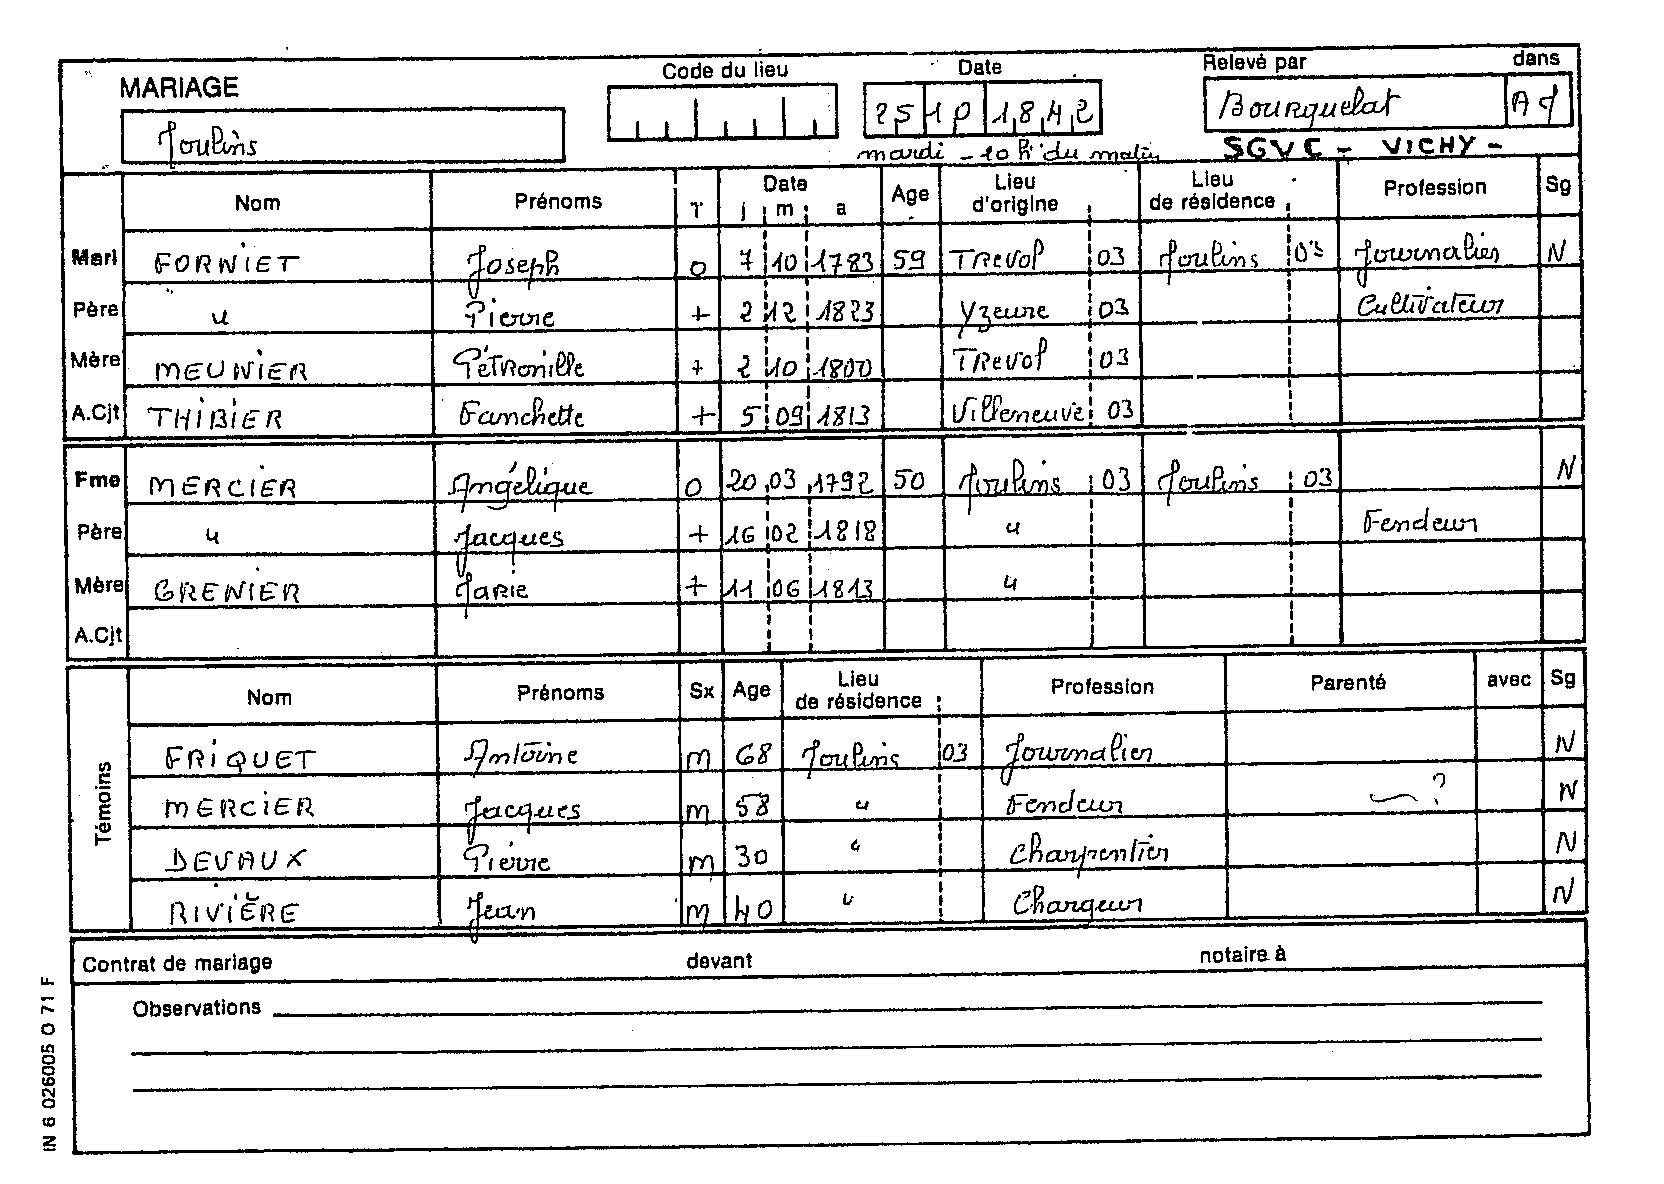 MARIAGE Code du lieu Date Relevé par dans
Moulins 25 10 1842 Bourquelat AD
mardi - 10 h du matin SGVC - VICHY -
Nom Prénoms T Date j m a Age Lieu d'origine Lieu de résidence Profession Sg
Mari FORNIET Joseph O 7 10 1783 59 TRevol 03 Moulins 03 Journalier N
Père " Pierre + 2 12 1823 Yzeure 03 Cultivateur
Mère MEUNIER PétRonille + 2 10 1800 TRevol 03
A.Cjt THIBIER Fanchette + 5 09 1813 Villeneuve 03
Fme MERCIER Angélique O 20 03 1792 50 Moulins 03 Moulins 03 N
Père " Jacques + 16 02 1818 " Fendeur
Mère GRENIER MaRie + 11 06 1813 "
A.Cjt
Témoins Nom Prénoms Sx Age Lieu de résidence Profession Parenté avec Sg
FRIQUET Antoine m 68 Moulins 03 Journalier N
MERCIER Jacques m 58 " Fendeur ? N
DEVAUX Pierre m 30 " Charpentier N
RIVIÈRE Jean m 40 " Chargeur N
Contrat de mariage devant notaire à
Observations
IN 6 026005 O 71 F